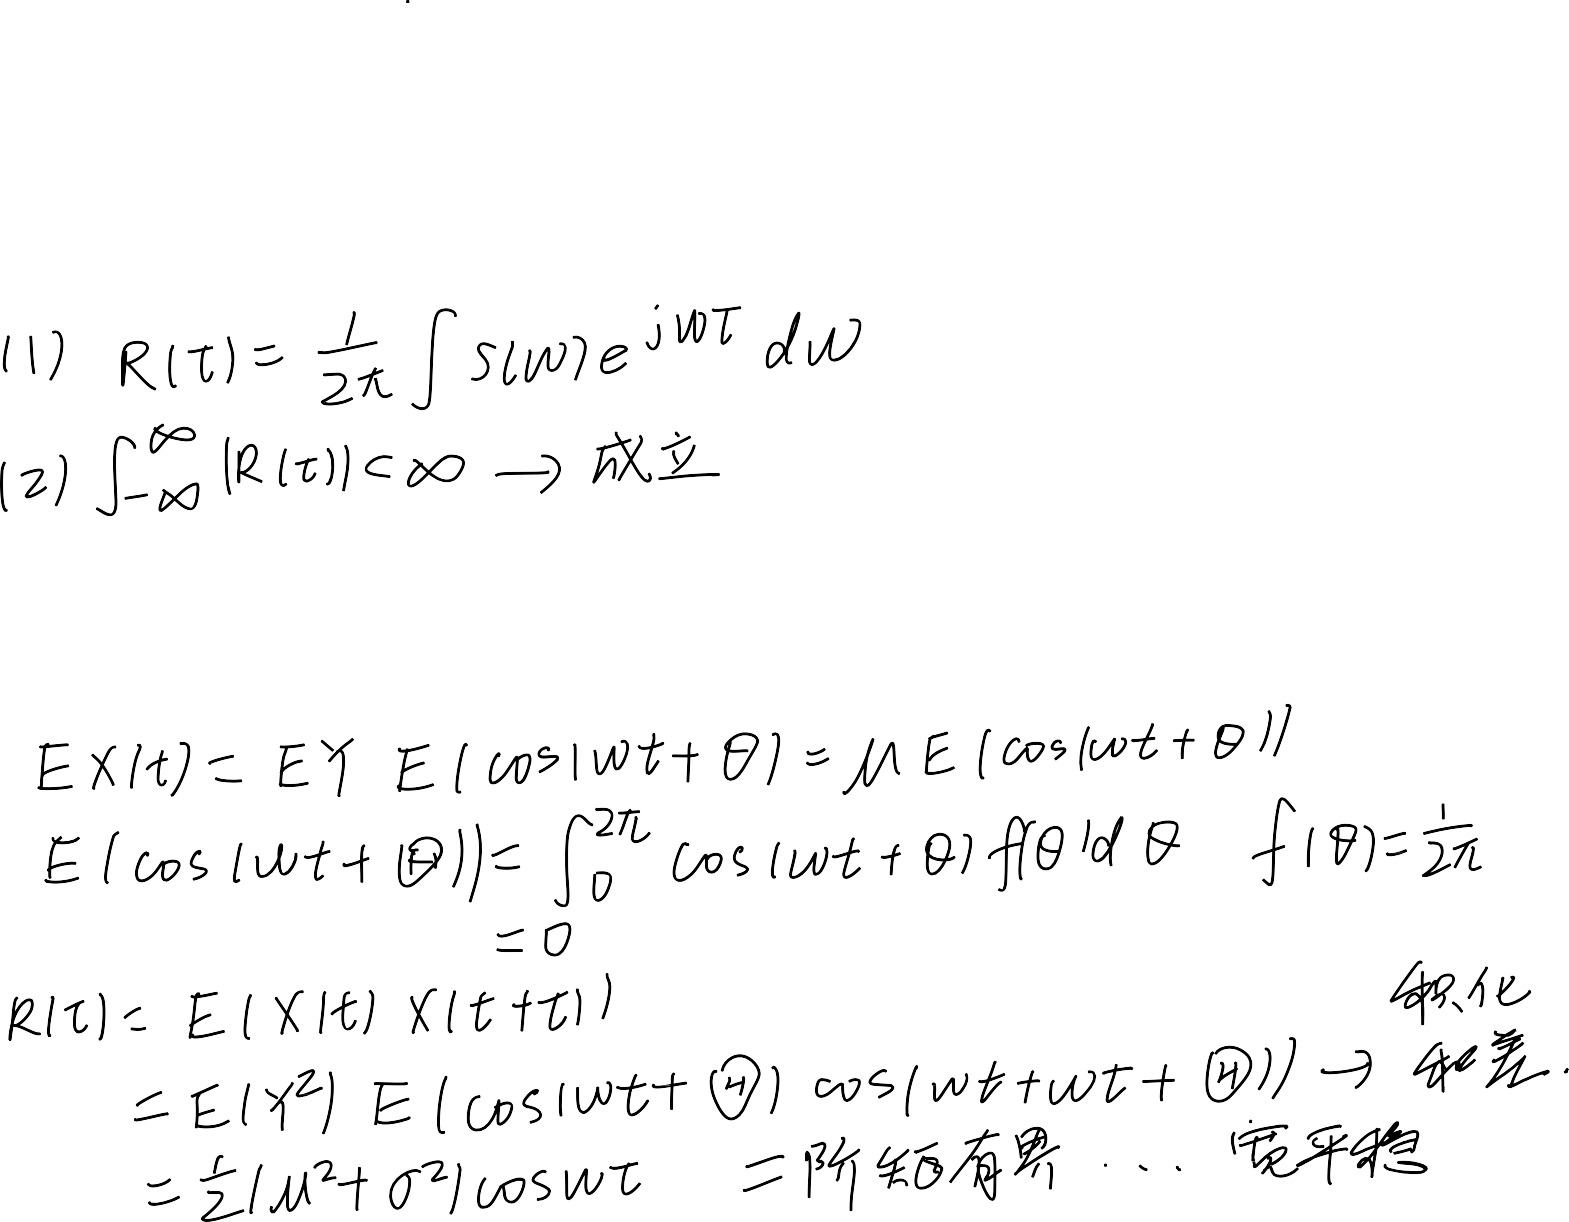 (1) R(τ) = 1/2π ∫ S(w) e^{jwτ} dw
(2) ∫_{-∞}^{∞} |R(τ)| < ∞ → 成立
E X(t) = EY E(cos(wt + θ) = μ E(cos(wt + θ))
E(cos(wt + Θ)) = ∫_0^{2π} cos(wt + θ) f(θ)dθ f(θ) = 1/2π
= 0
R(τ) = E(X(t) X(t+τ))
= E(Y²) E(cos(wt + Θ) cos(wt + wτ + Θ)) → 积化和差.
= 1/2 (μ² + σ²) cos wτ 二阶矩有界 ... 宽平稳